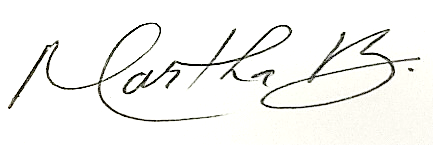 Martha B.